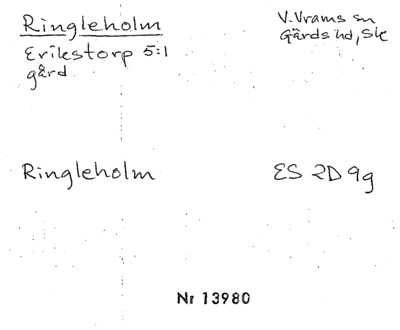 Ringleholm
V. Vrams sn
Erikstorp 5:1
Gärds hd, Sk
gård
Ringleholm
ES 2D 9g
Nr 13980